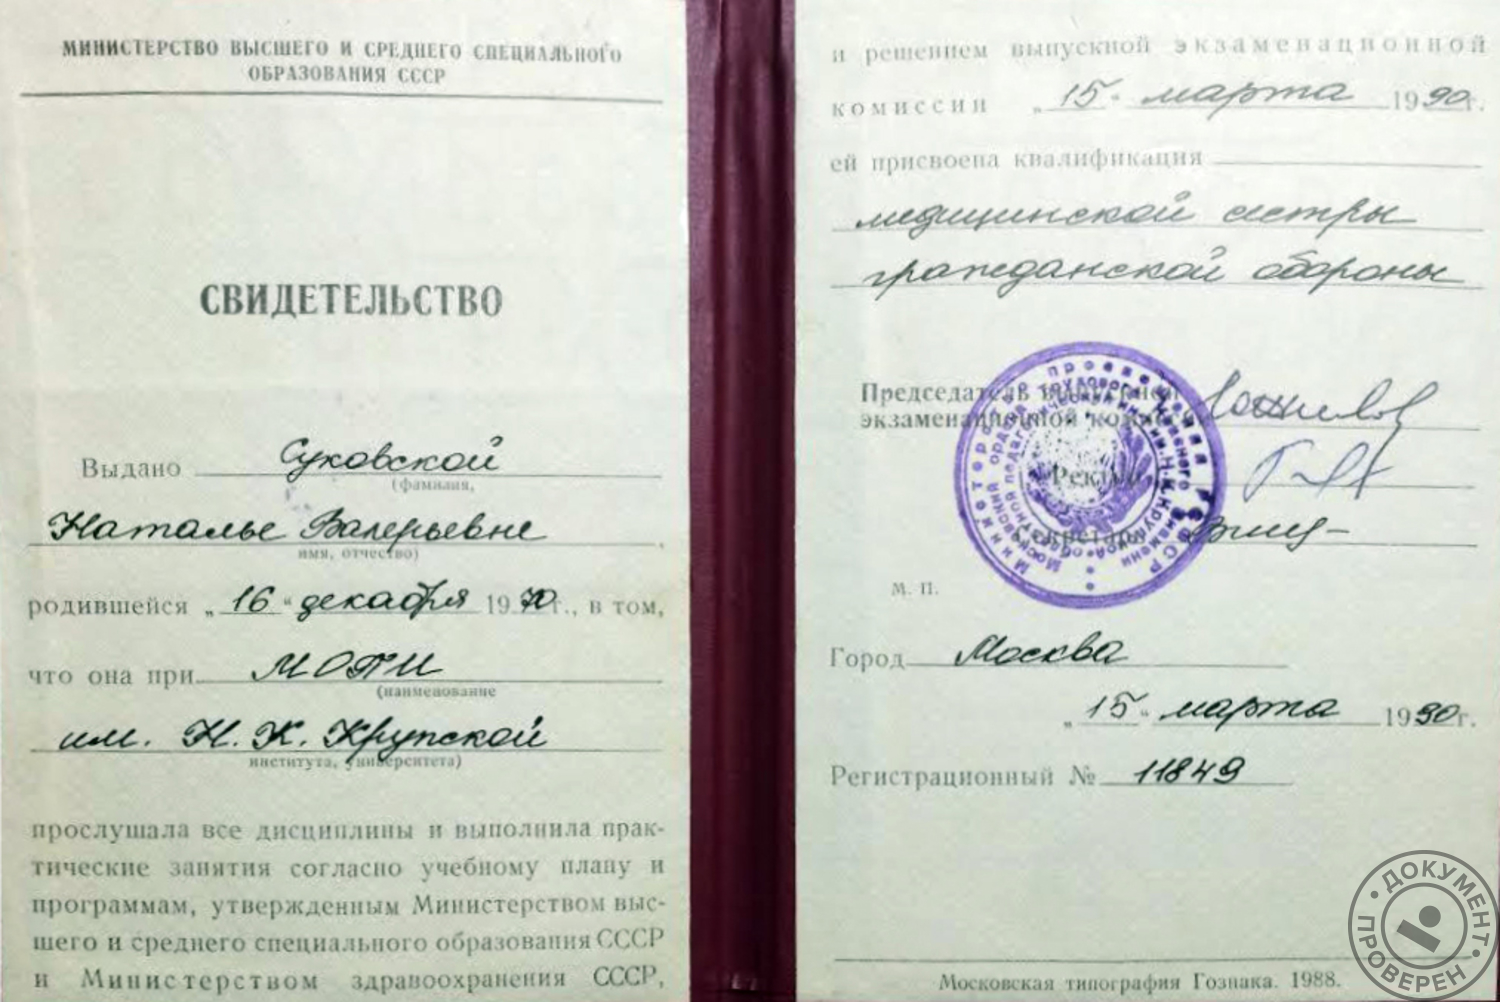 МИНИСТЕРСТВО ВЫСШЕГО И СРЕДНЕГО СПЕЦИАЛЬНОГО
ОБРАЗОВАНИЯ СССР
СВИДЕТЕЛЬСТВО
Выдано Суковской
(фамилия,
Наталье Валерьевне
имя, отчество)
родившейся „16" декабря 1970 г., в том,
что она при МОПИ
(наименование
им. Н. К. Крупской
института, университета)
прослушала все дисциплины и выполнила прак-
тические занятия согласно учебному плану и
программам, утвержденным Министерством выс-
шего и среднего специального образования СССР
и Министерством здравоохранения СССР,
и решением выпускной экзаменационной
комиссии „15" марта 1990 г.
ей присвоена квалификация
медицинской сестры
гражданской обороны
Председатель
экзаменационной
Ректор
Секретарь
М. П.
Город Москва
„15" марта 1990 г.
Регистрационный № 11849
Московская типография Гознака. 1988.
ДОКУМЕНТ
ПРОВЕРЕН